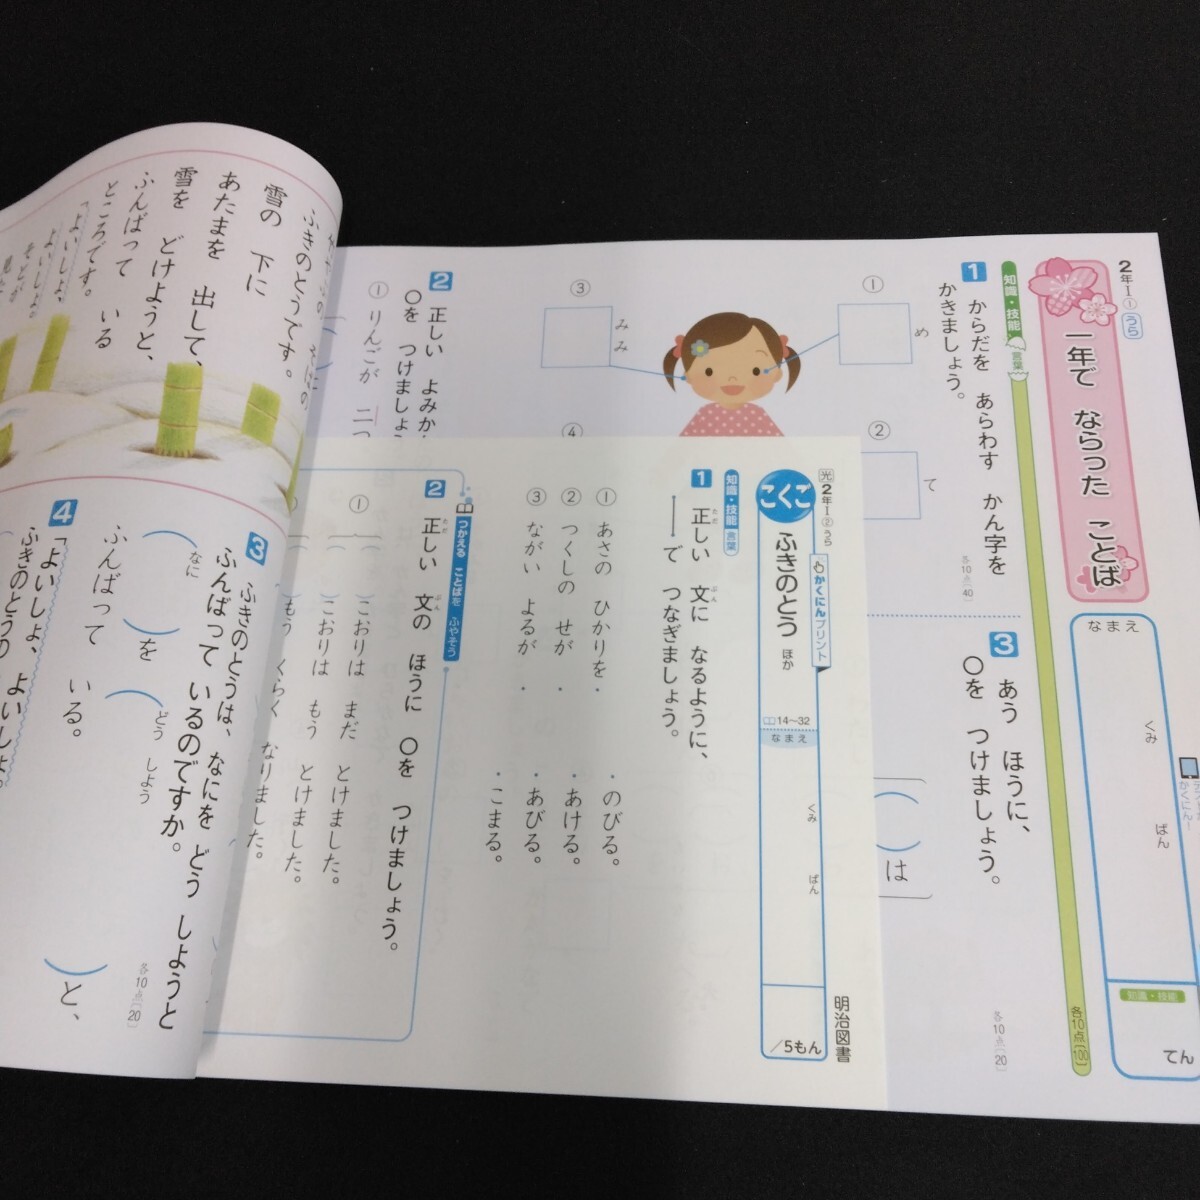 2年Ⅰ①
うら
一年で ならった ことば
なまえ
くみ
ばん
知識・技能
てん
知識・技能 言葉
各10点〔100〕
1
からだを あらわす かん字を
かきましょう。
各10点〔40〕
①
め
②
て
③
みみ
④
2
正しい
○を つけましょう
① りんごが 二つ
3
あう ほうに、
○を つけましょう。
各10点〔20〕
は
光
2年Ⅰ②うら
こくご
ふきのとう ほか
かくにんプリント
14〜32
なまえ
くみ
ばん
/5もん
明治図書
知識・技能 言葉
1
正しい 文に なるように、
ただ
ぶん
──で つなぎましょう。
① あさの ひかりを・
② つくしの せが・
③ ながい よるが・
・のびる。
・あける。
・あびる。
・こまる。
つかえる ことばを ふやそう
2
正しい 文の ほうに ○を つけましょう。
ただ
ぶん
①
( )こおりは まだ とけました。
( )こおりは もう とけました。
( )もう くらく なりました。
ふきのとうです。
雪の 下に
あたまを 出して、
雪を どけようと、
ふんばって いる
ところです。
「よいしょ、
よいしょ。
3
ふきのとうは、なにを どう しようと
ふんばって いるのですか。
各10点〔20〕
( )を( )と、
なに
どう しよう
ふんばって いる。
4
「よいしょ、よいしょ。
ふきのとうの